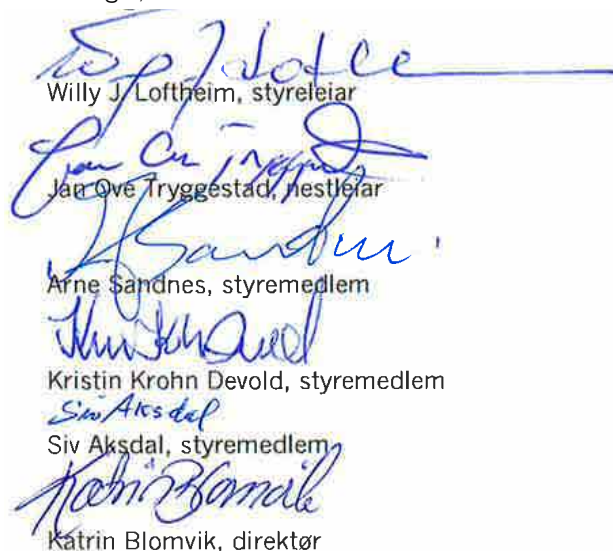 Willy J. Loftheim, styreleiar
Jan Ove Tryggestad, nestleiar
Arne Sandnes, styremedlem
Kristin Krohn Devold, styremedlem
Siv Aksdal
Siv Aksdal, styremedlem
Katrin Blomvik
Katrin Blomvik, direktør